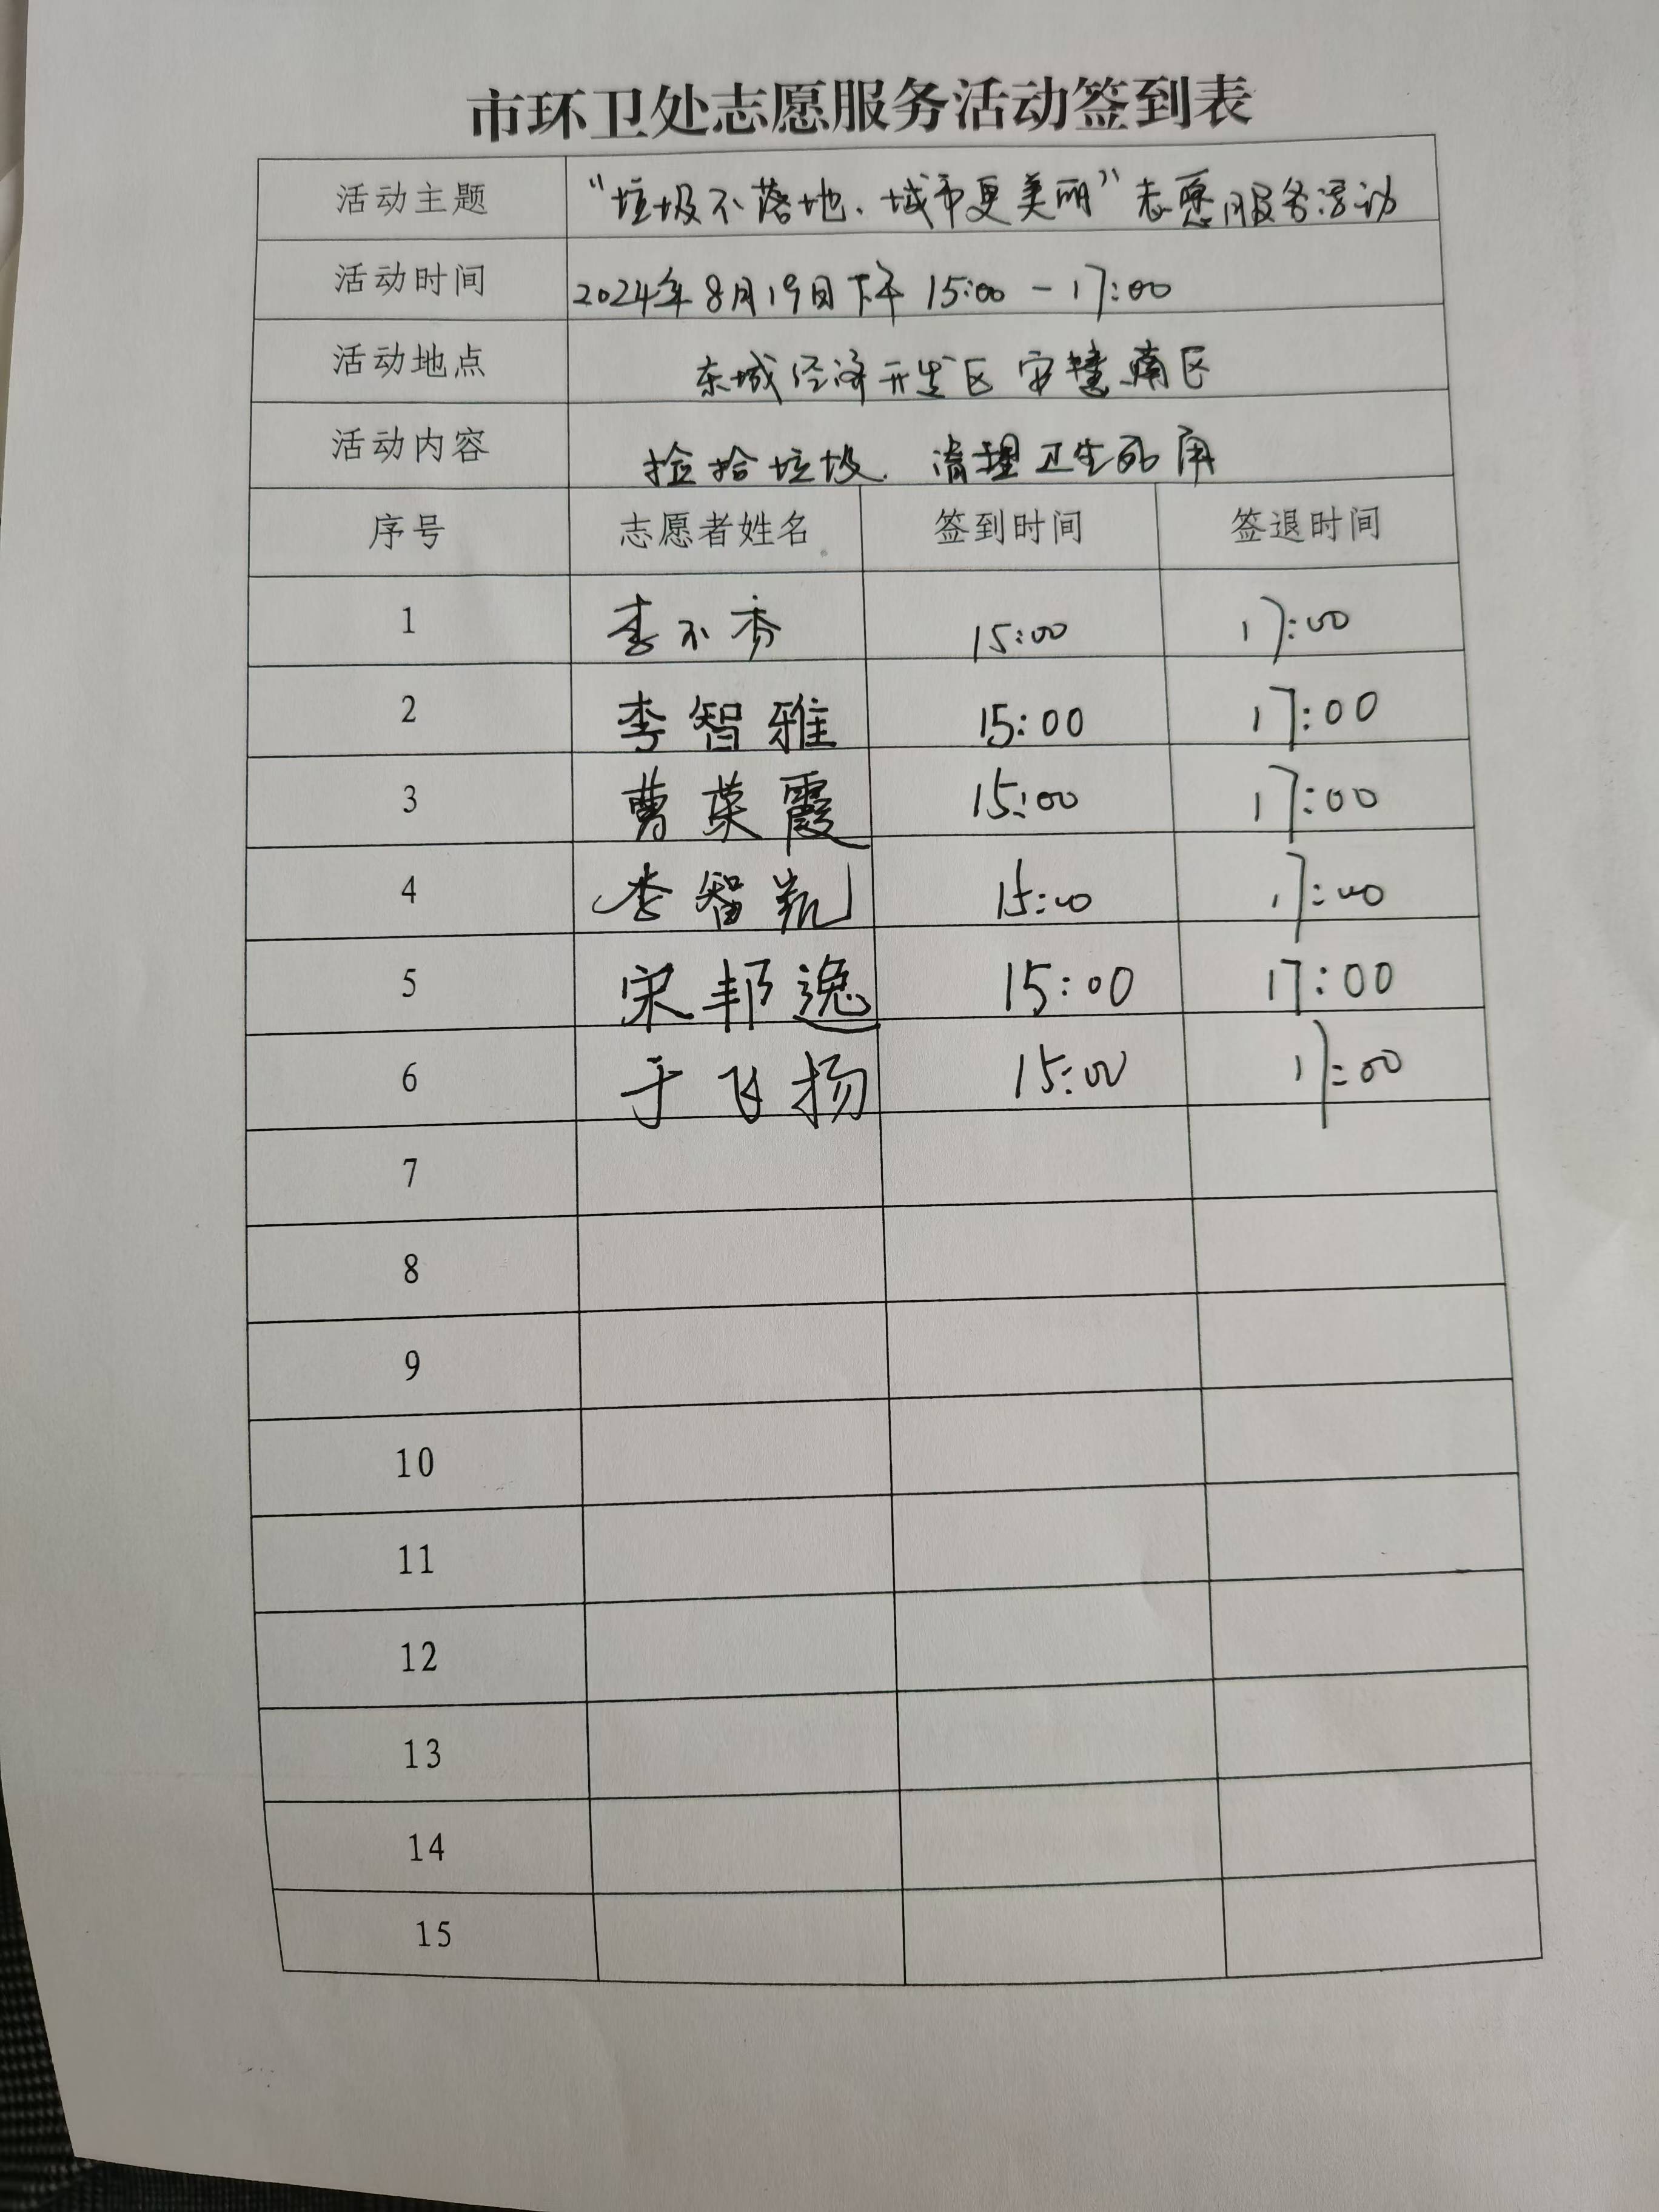 市环卫处志愿服务活动签到表
活动主题 “垃圾不落地、城市更美丽”志愿服务活动
活动时间 2024年8月19日下午 15:00-17:00
活动地点 东城经济开发区安慧南区
活动内容 捡拾垃圾、清理卫生死角
序号 志愿者姓名 签到时间 签退时间
1 李不秀 15:00 17:00
2 李智雅 15:00 17:00
3 曹荣霞 15:00 17:00
4 李智凯 15:00 17:00
5 宋邦逸 15:00 17:00
6 于飞扬 15:00 17:00
7
8
9
10
11
12
13
14
15